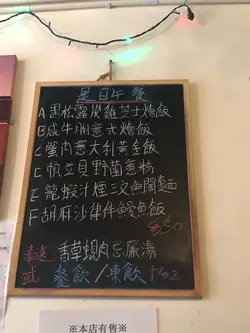 是日午餐
A黑松露炭雞芝士燴飯
B咸牛脷意式燴飯
C蟹肉意大利黃金飯
D帆立貝野菌意粉
E龍蝦汁煙三文魚闊麵
F胡麻沙律伴鰻魚飯
$50
奉送：香草蜆肉忌廉湯
或 餐飲/凍飲+$2
※本店有售※